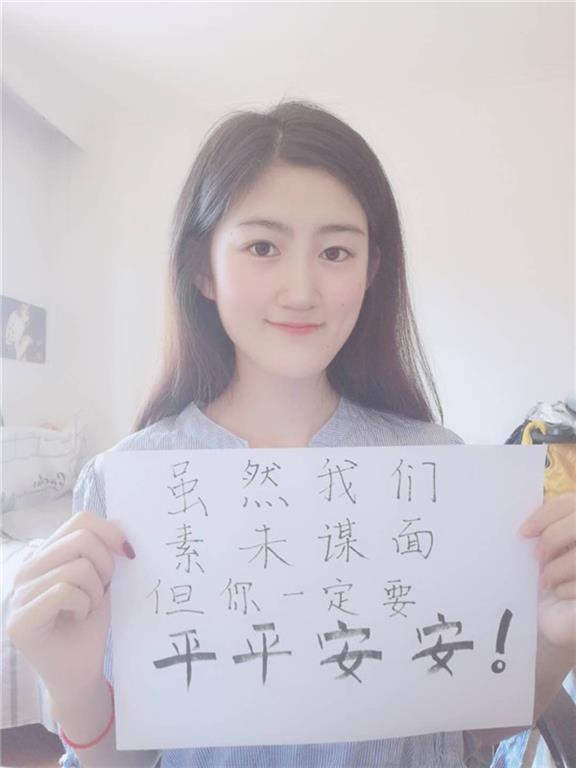 虽然我们
素未谋面
但你一定要
平平安安！